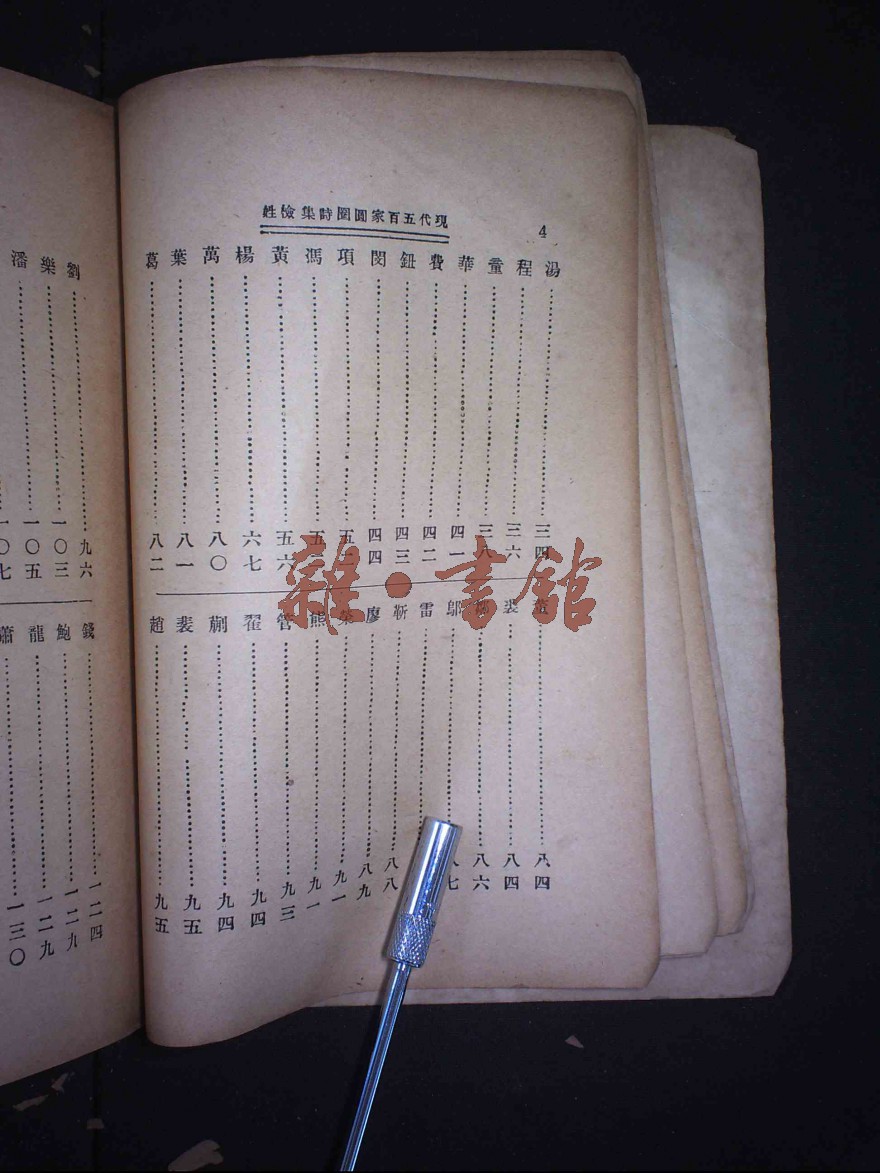 4
現代五百家圓圈時集檢姓
湯……三四
程……三六
童……三八
華……四一
費……四二
鈕……四三
閔……四四
項……五
馮……五
黃……五六
楊……六七
萬……八〇
葉……八一
葛……八二
……八四
裘……八四
……八六
鄔……八七
雷……
靳……八八
廖……八九
……九一
熊……九一
管……九三
翟……九四
蒯……九四
裴……九五
趙……九五
劉……九六
樂……一〇三
潘……一〇五
一〇七
錢……一二四
鮑……一二九
龍……一二九
蕭……一三〇
雜·書館